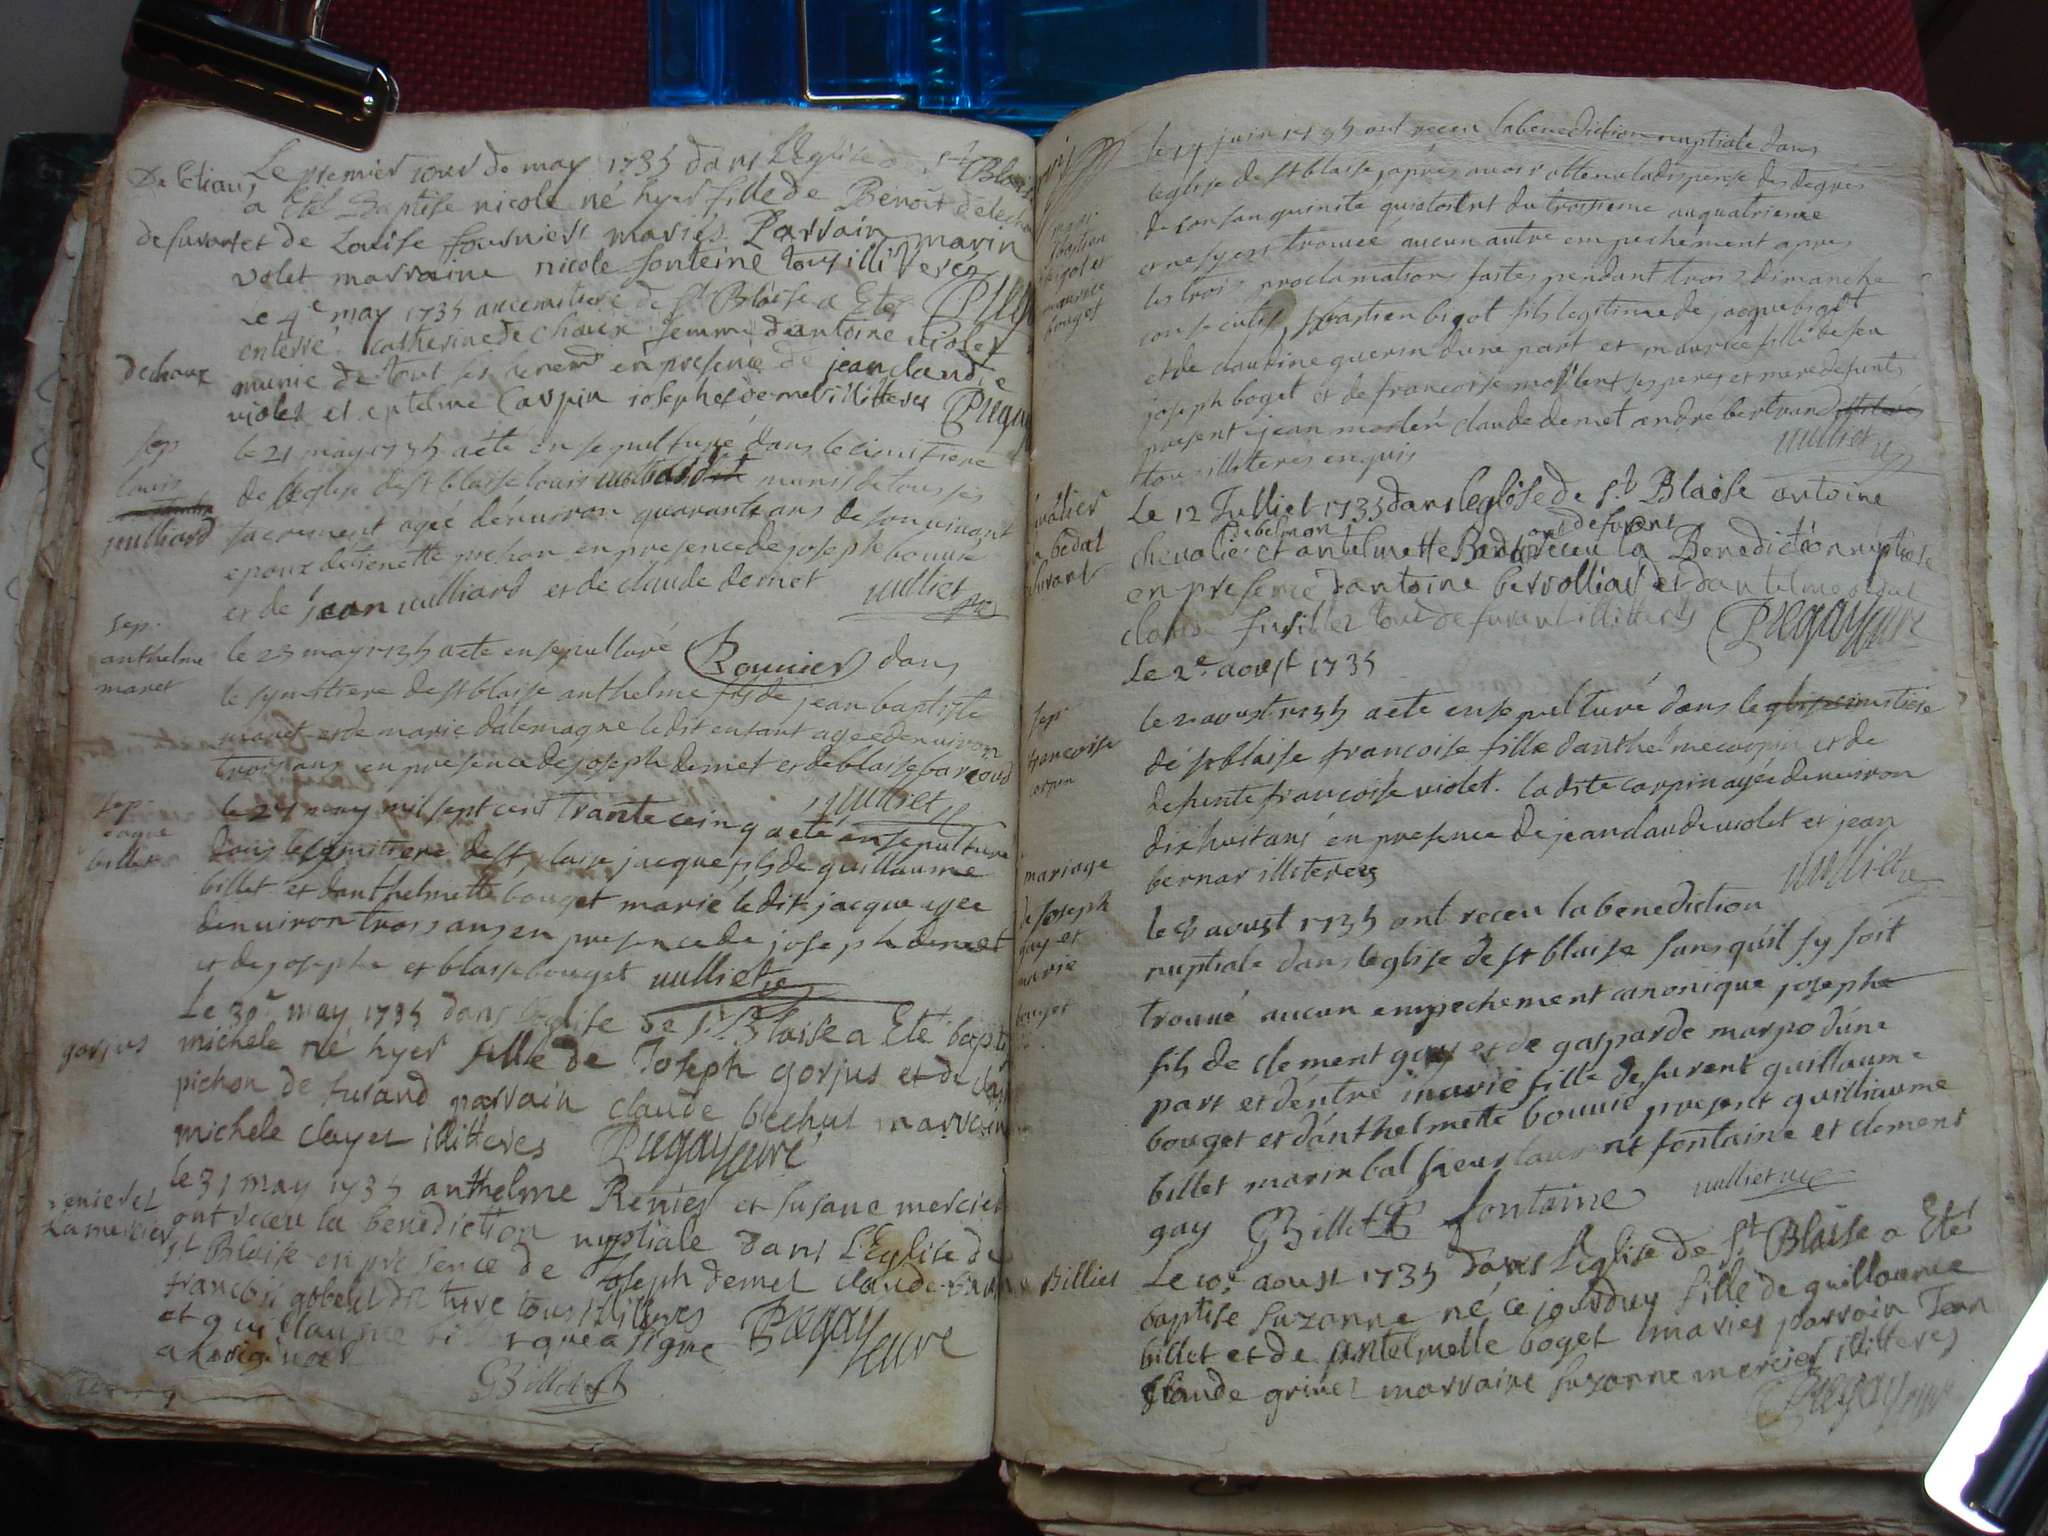 De letiaus
Le premier jour de may 1735 dans l'Eglise de St Blaise
a Eté Baptise nicole né hyer fille de Benoit
de furans et de Louise fournier mariés Parrain marin
volet marraine nicole fonteine tous illiterés
Le 4e may 1735 au cemitiere de St Blaise a Eté
enterré catherine de chaux femme d'antoine violet
dechaux
munie de tout ses sacrem en presence de jean claude
violet et entelme Carpin joseph demet illitteres
sep.
louis
vulliard
le 21 may 1735 a été ensepulturé dans le cimitiere
de l'eglise de st blaise louis munis de tous ses
sacrement agée d'enuiron quarante ans de son uiuant
epoux d'etienette pichon en presence de joseph bouuié
et de jean vulliard et de claude demet vulliet
sep.
anthelme
maret
le 23 may 1735 a ete ensepulturé Rounier dans
le symitiere de st blaise anthelme fils de jean baptiste
maret et de marie d'alemagne le dit enfant agée d'enuiron
trois ans en presence de joseph demet et de blaise barcoud
vulliet
sep.
jaque
billet
le 24 may mil sept cent trante ceinq a eté ensepulture
dans le symitiere de st blaise jacque fils de guillaume
billet et d'anthelmette bouget marié le dit jacque agee
d'enuiron trois ans en presence de joseph demet
et de joseph et blaise bouget vulliet
Le 30e may 1735 dans l'eglise de St Blaise a Eté bapt
gorjus
michele né hyer fille de Joseph gorjus et de
pichon de furand parrain claude bechut marrein
michele clayet illitteres Pugay curé
le 31 may 1735 anthelme Renier et susane mercier
renier et
la mercier
ont receu la benediction nuptiale dans L'Eglise de
St Blaise en presence de joseph demet claude
francois gobet tous illiteres
et guillaume qui a signe Pugay curé
a l'original
GBillet
le 14 juin 1735 ont receu la benediction nuptiale dans
l'eglise de st blaise, apres auoir obtenu la dispense des degrés
de consanguinité qui etoient du troisieme au quatrieme
et ne s'y est trouué aucun autre empechement apres
les trois proclamations faites pendant trois dimanche
consecutif sebastien bigot fils legitime de jacque bigot
sebastien
bigot et
maurice
bouget
et de claudine guerin d'une part et maurice fille de feu
joseph boget et de francoise mollent ses peres et mere defunts
present jean merlen claude demet andré bertrand
tous illiteres enquis vulliet
Le 12 Julliet 1735 dans leglise de St Blaise antoine
chevalier
la bedat
furans
de belmon de furans
chevalier et antelmette Bedat ont receu la Benediction nuptiale
en presence d'antoine bervolliat et d'antelme bedat
claude fusillet tous de furans illiteres Pugay curé
Le 2e aoust 1735
sep.
francoise
carpin
le 2 aoust 1735 a eté ensepulturé dans leglise cimitiere
de st blaise francoise fille d'anthelme carpin et de
defunte francoise violet. la dite carpin agée d'enuiron
dix huit ans en presence de jean claude violet et jean
bernar illiteres vulliet
mariage
de joseph
gay et
marie
bouget
le 8 aoust 1735 ont receu la benediction
nuptiale dans leglise de st blaise sans qu'il s'y soit
trouué aucun empechement canonique joseph
fils de clement gay et de gasparde marpo d'une
part et d'entre marie fille de furent guillaume
bouget et d'anthelmette bouuié present guilliaume
billet marin bal sieur laurent fontaine et clement
gay GBillet fontaine vulliet
Billiet
Le 10e aoust 1735 dans l'eglise de St Blaise a Eté
baptise suzanne né ce jourduy fille de guillaume
billet et de antelmette boget mariés parrain Jean
Claude grinet marraine suzanne mercier illiteres
Pugay curé